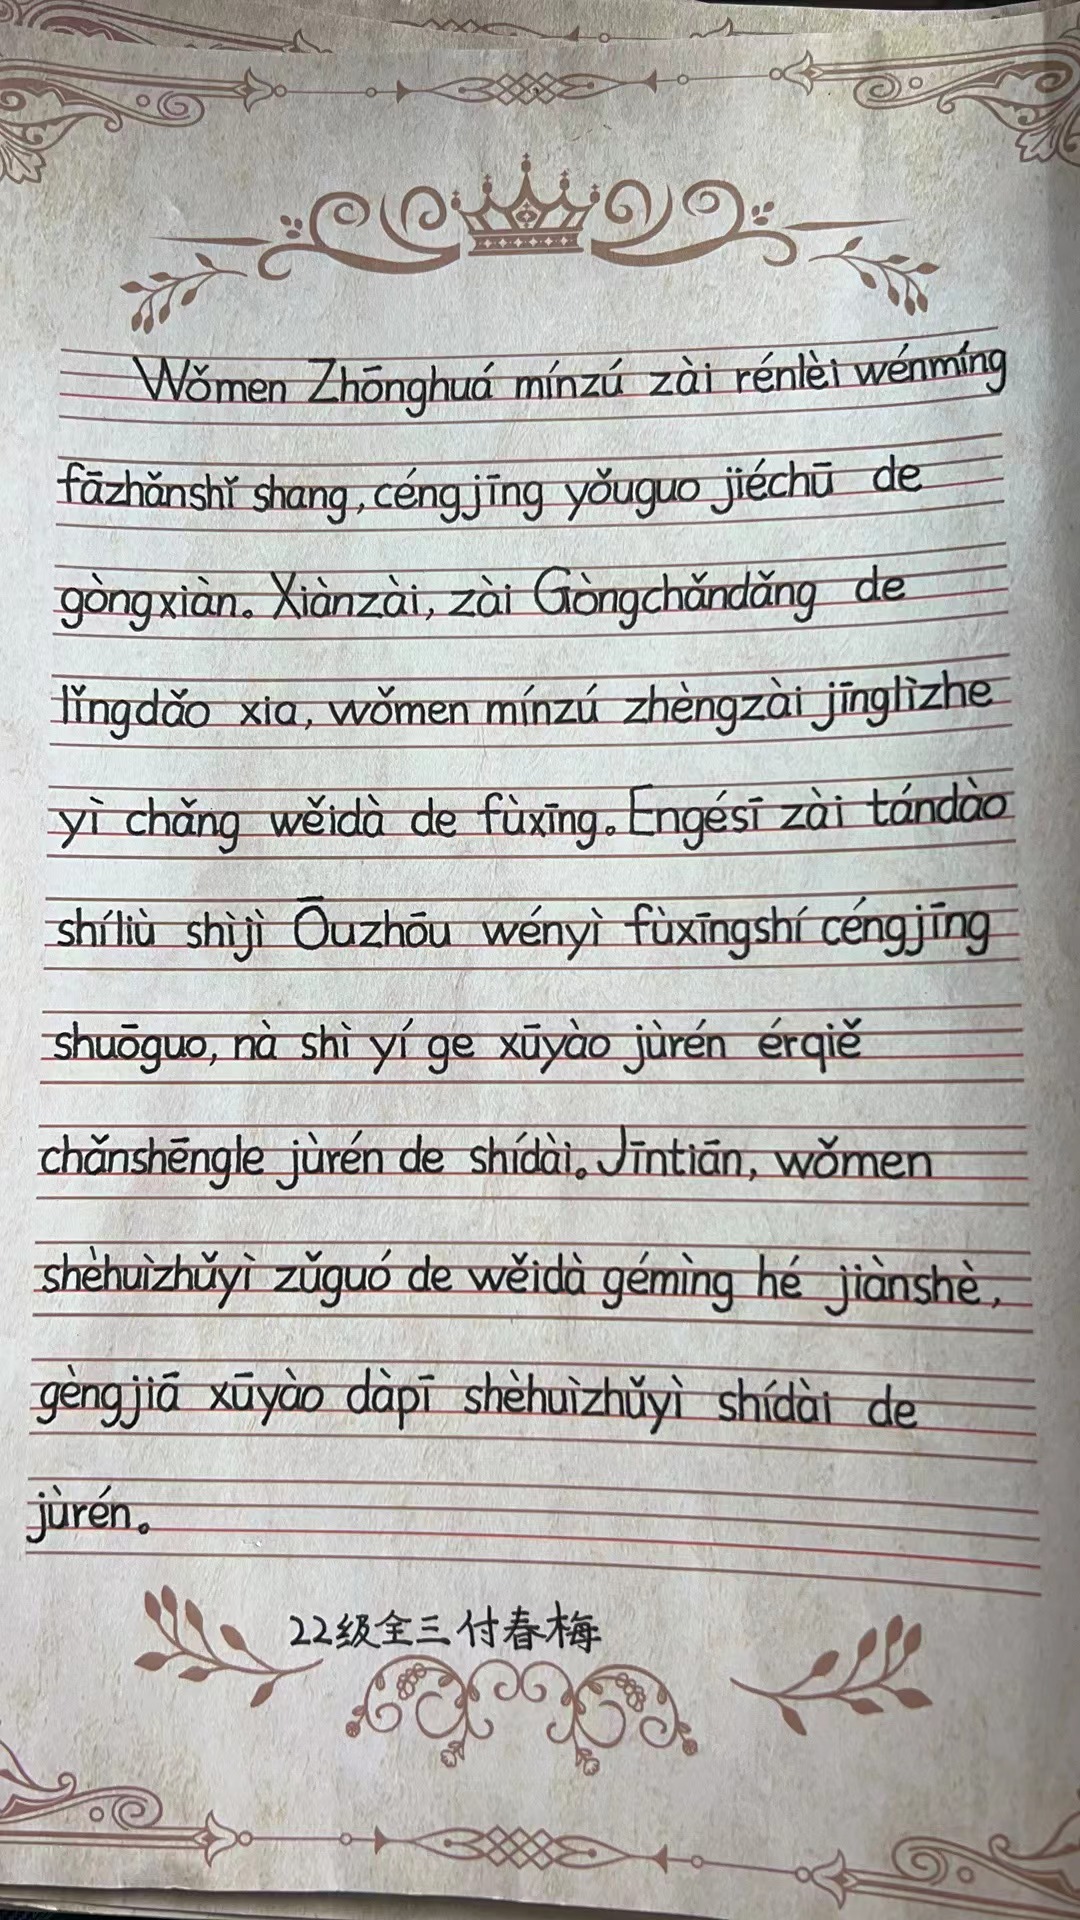 Wǒmen Zhōnghuá mínzú zài rénlèi wénmíng
fāzhǎnshǐ shang, céngjīng yǒuguo jiéchū de
gòngxiàn. Xiànzài, zài Gòngchǎndǎng de
lǐngdǎo xia, wǒmen mínzú zhèngzài jīnglìzhe
yì chǎng wěidà de fùxīng. Engésī zài tándào
shíliù shìjì Ōuzhōu wényì fùxīngshí céngjīng
shuōguo, nà shì yí ge xūyào jùrén érqiě
chǎnshēngle jùrén de shídài. Jīntiān, wǒmen
shèhuìzhǔyì zǔguó de wěidà gémìng hé jiànshè,
gèngjiā xūyào dàpī shèhuìzhǔyì shídài de
jùrén.
22级全三付春梅